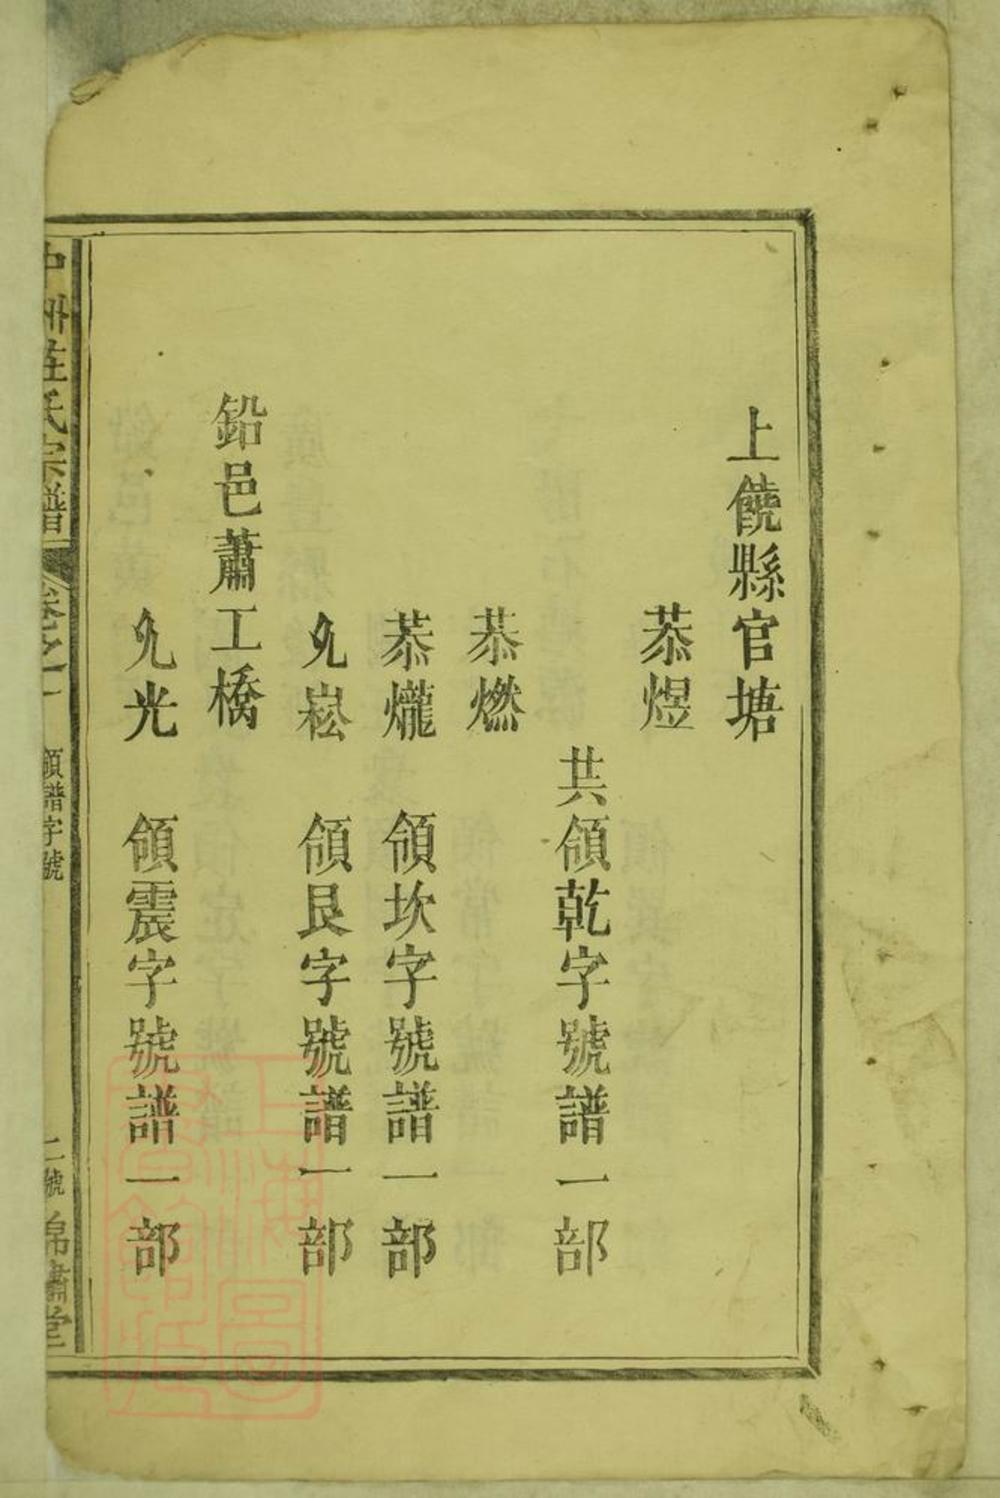 上饒縣官塘
恭煜
共領乾字號譜一部
恭燃
恭爖 領坎字號譜一部
允崧 領艮字號譜一部
鉛邑蕭工橋
允光 領震字號譜一部
中洲莊氏宗譜
卷之一
領譜字號
二號
錦繡堂
上海圖書館藏